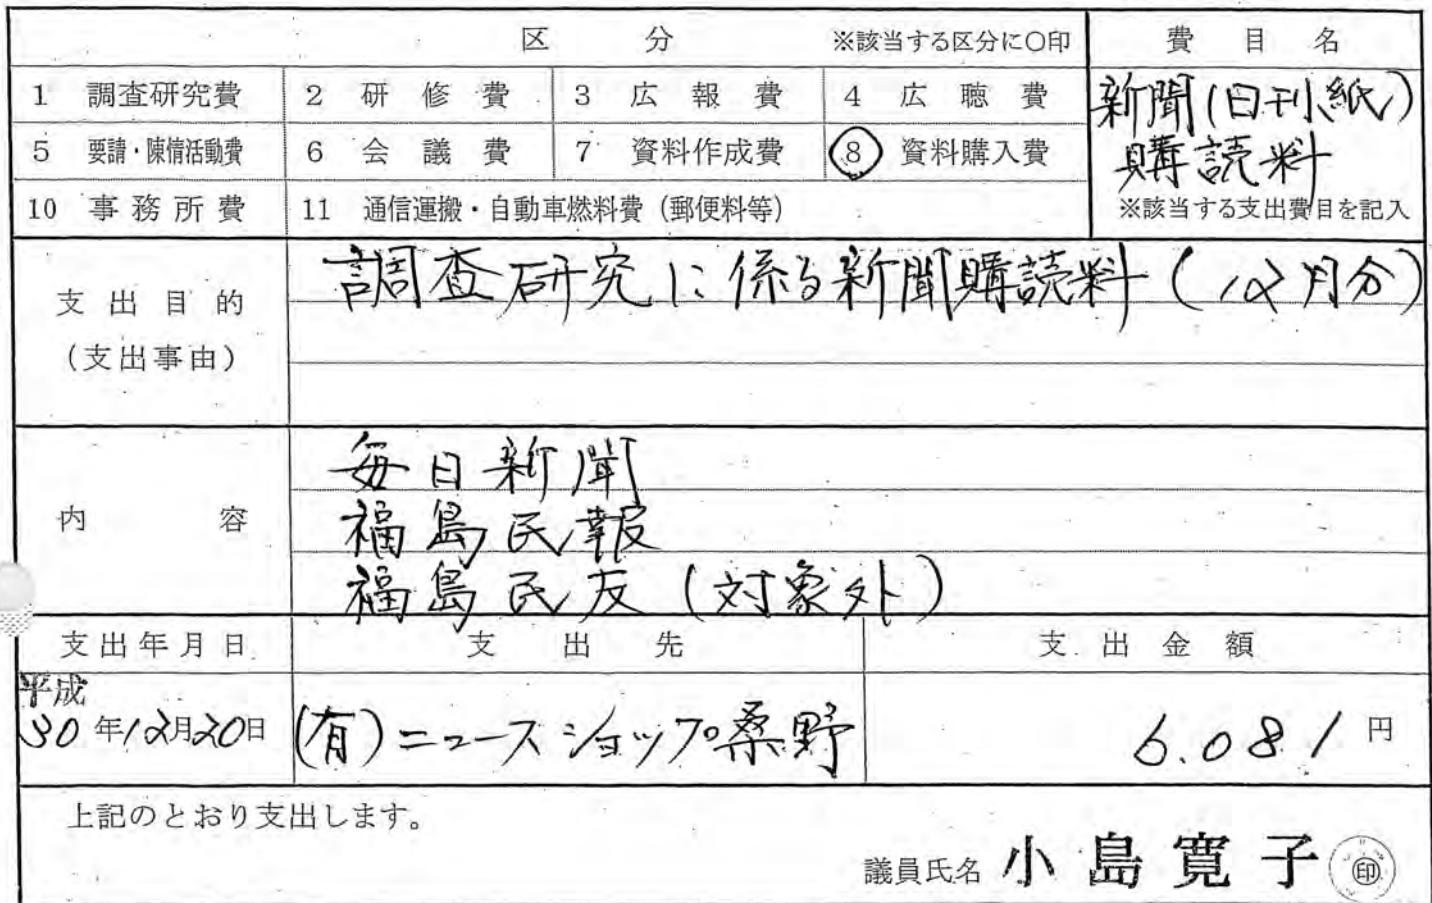 区分 ※該当する区分に○印 費目名
1 調査研究費 2 研修費 3 広報費 4 広聴費 新聞(日刊紙)
5 要請・陳情活動費 6 会議費 7 資料作成費 8 資料購入費 購読料
10 事務所費 11 通信運搬・自動車燃料費(郵便料等) ※該当する支出費目を記入
支出目的 調査研究に係る新聞購読料(12月分)
(支出事由)
毎日新聞
内容 福島民報
福島民友(対象外)
支出年月日 支出先 支出金額
平成
30年12月20日 (有)ニュースショップ桑野 6.081円
上記のとおり支出します。
議員氏名 小島寛子 印